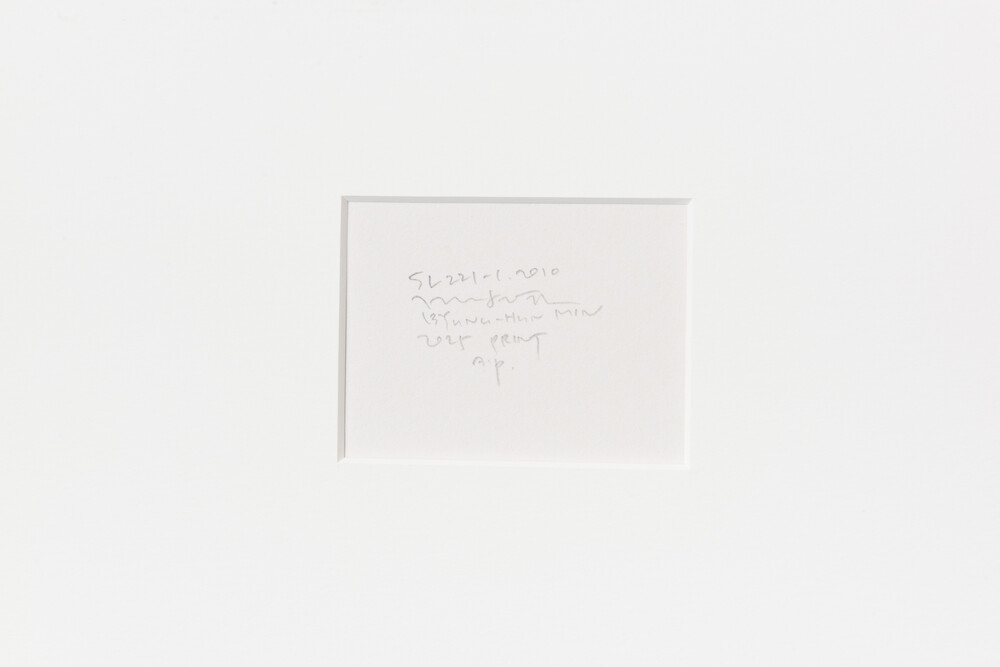 SL221-1. 2010
BYUNG-HUN MIN
2025 PRINT
A.P.